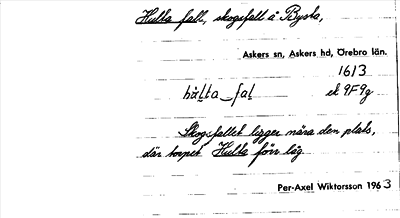 Hulta fall, skogsfall å Bysta,
Askers sn, Askers hd, Örebro län.
1613
hùlta‿fal ek 9F9g
Skogsfallet ligger nära den plats,
där torpet Hulta förr låg
Per-Axel Wiktorsson 1963